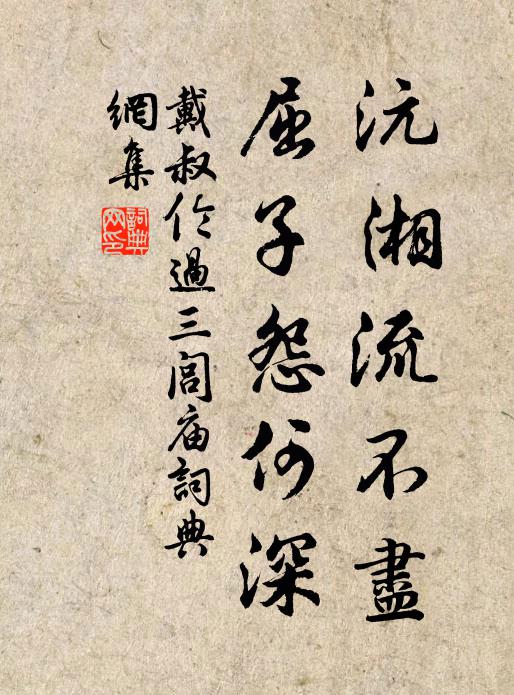 沅湘流不盡
屈子怨何深
戴叔伦過三閭庙詞典
網集
詞典網印